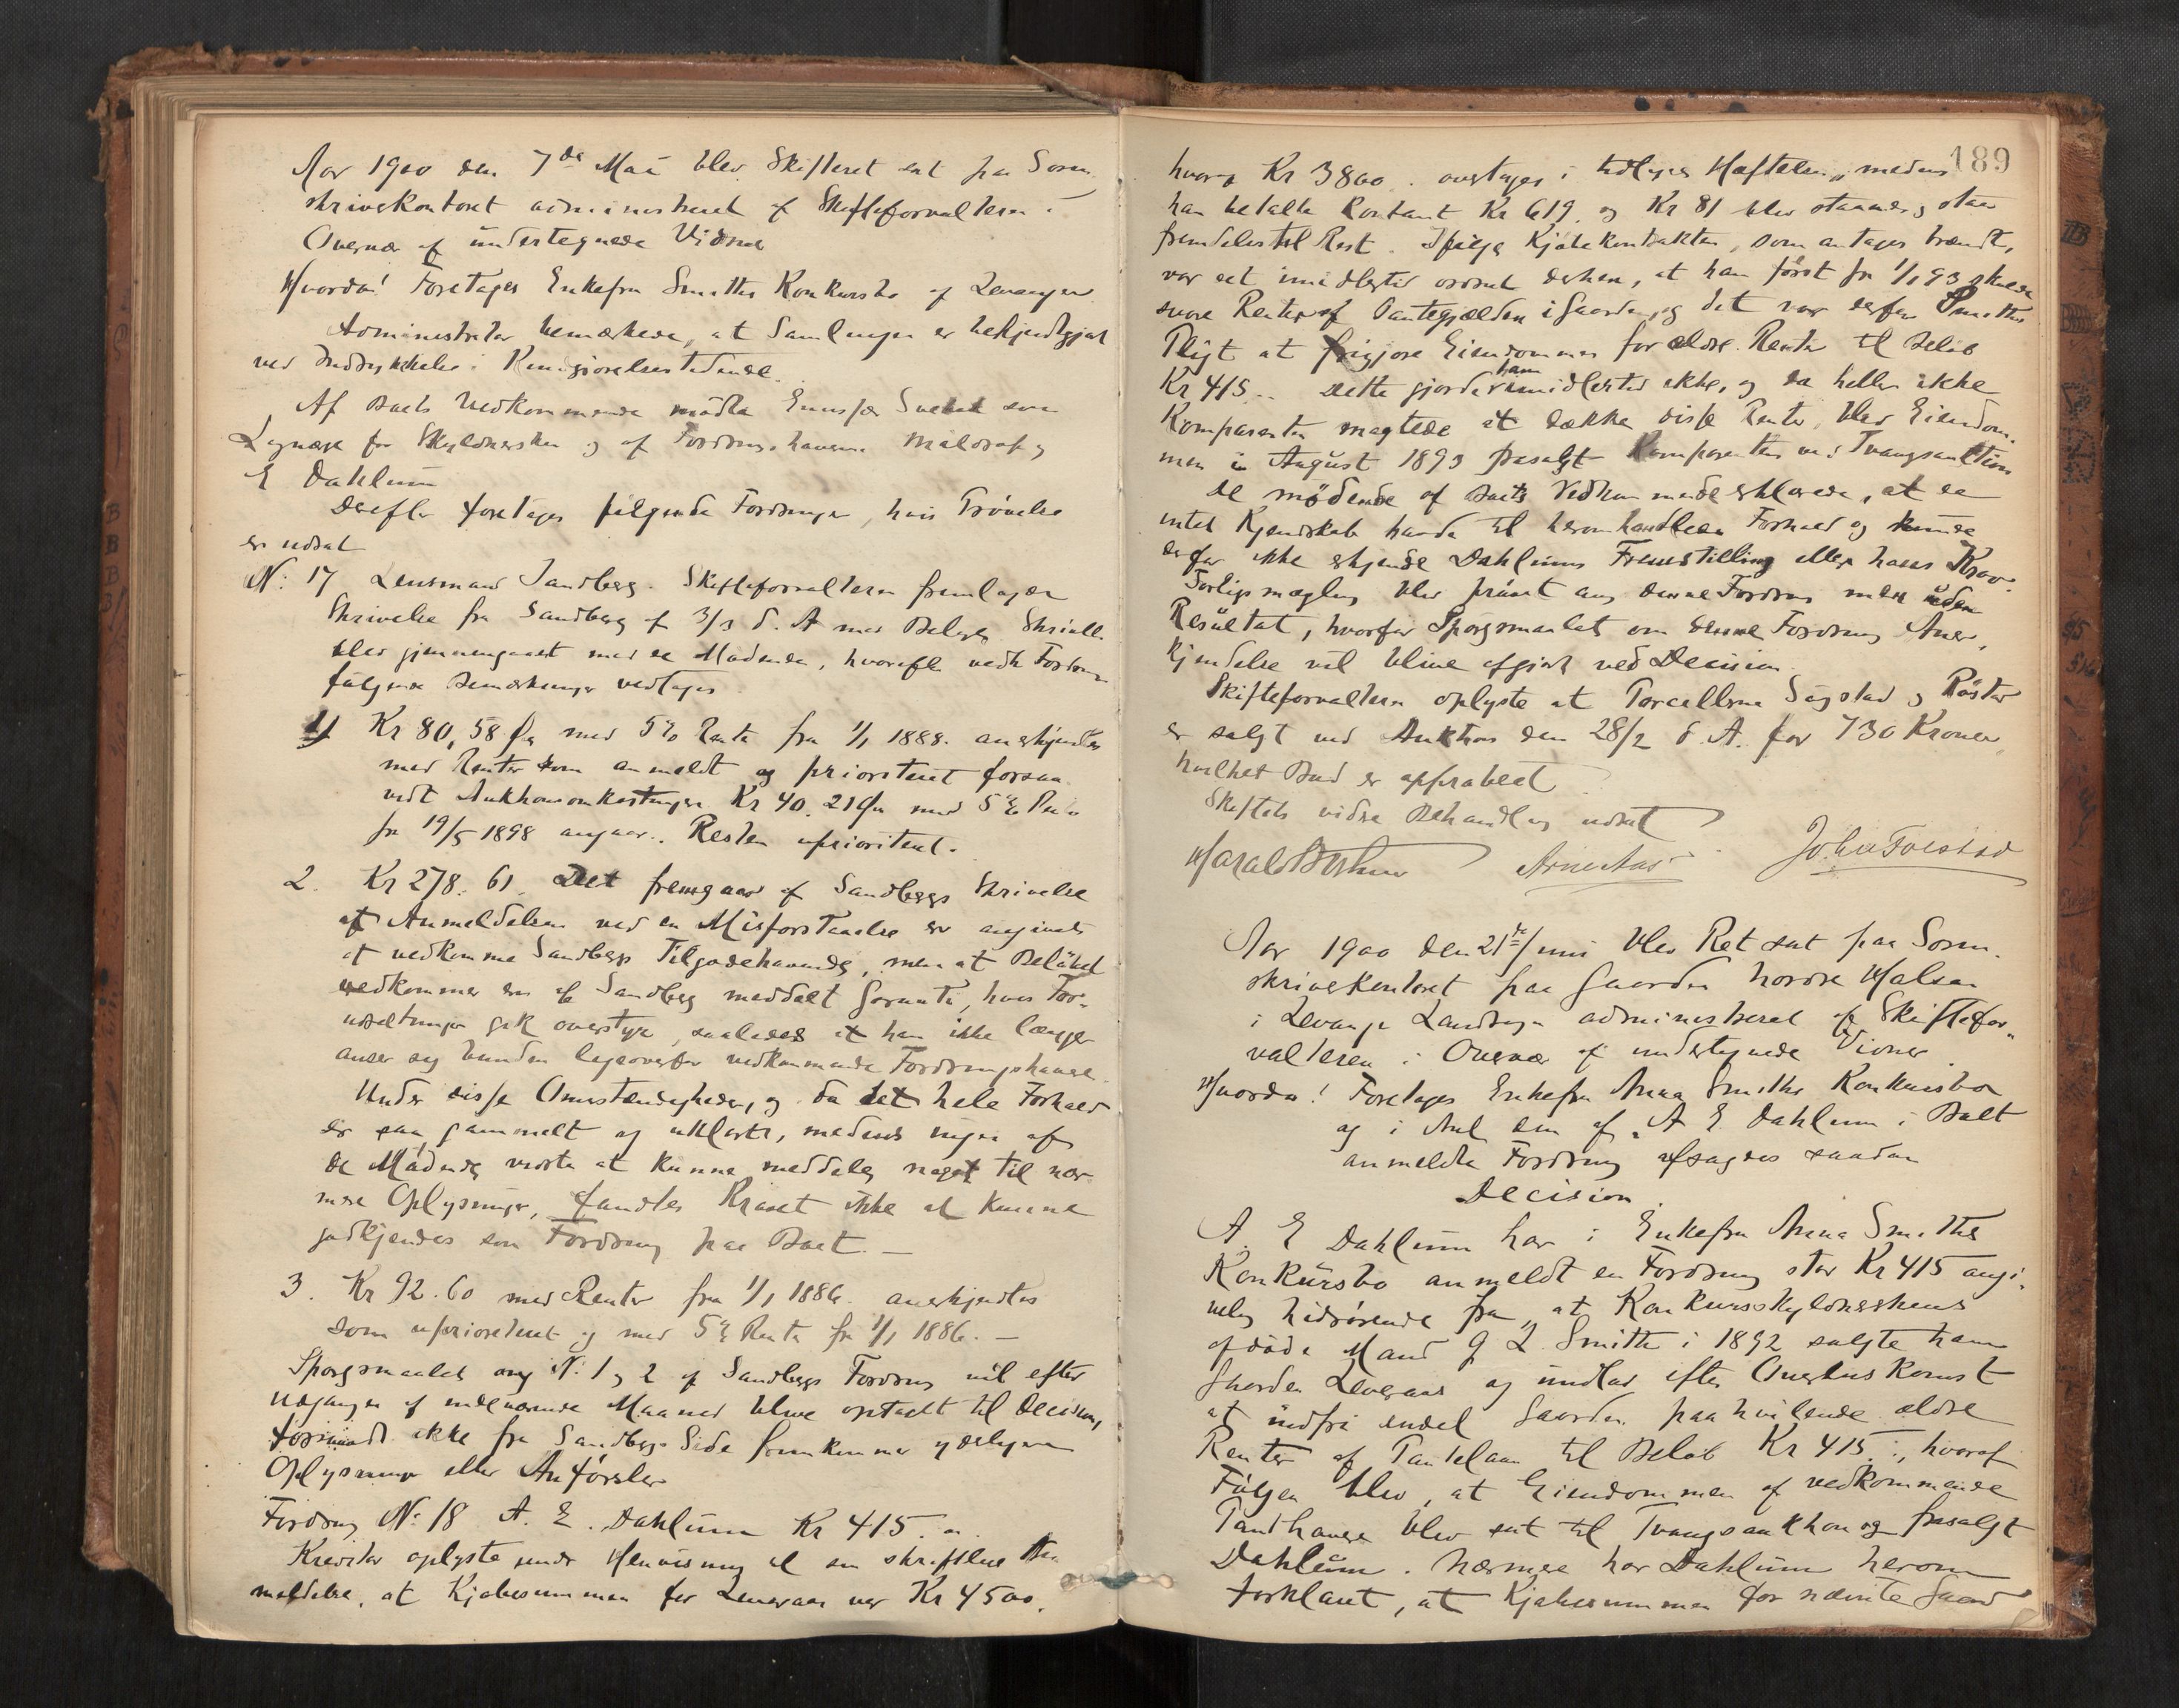 Aar 1900 den 7de Mai blev Skifteret sat paa Soren
skriverkontoret administreret af Skifteforvalteren i
Overvær af undertegnede Vidner
Hvorda! Foretages Enkefru Smiths Konkursbo af Levanger
Administrator bemærkede, at Samlingen er bekjendtgjort
ved Indrykkelse i Kundgjørelsestidende.
Af Boets Vedkommende mødte
Lagværge for Skyldnersken og af Fordringshaverne og
E Dahlum
Derefter foretages følgende Fordringer, hvis Prøvelse
er udsat
N: 17 Lensmand Sandberg. Skifteforvalteren fremlagde
Skrivelse fra Sandberg af 3/3 d. A med Bilage.
blev gjennemgaaet med de Mødende, hvorefter vedk Fordring
følgende Bemærkninger vedtoges
1) Kr 80,58 Øre med 5% Rente fra 1/1 1888. anerkjendtes
med Renter som anmeldt og prioriteret forsaa
vidt Auktionsomkostninger Kr 40.21 Øre med 5% Rente
fra 19/5 1898 angaar. Resten uprioriteret.
2. Kr 278.61. Det fremgaar af Sandbergs Skrivelse
at Anmeldelsen ved en Misforstaaelse er angivet
at vedkomme Sandbergs Tilgodehavende, men at Beløbet
vedkommer en af Sandberg meddelt Garanti, hvis For-
udsætninger gik overstyr, saaledes at han ikke længer
anser sig bunden ligeoverfor vedkommende Fordringshaver.
Under disse Omstændigheder, og da det hele Forhold
er saa gammelt og uklart, medens ingen af
de Mødende vidste at kunne meddele noget til nær-
mere Oplysning, fandtes Kravet ikke at kunne
godkjendes som Fordring paa Boet. —
3. Kr 92.60 med Renter fra 1/1 1886. anerkjendtes
som uprioriteret og med 5% Rente fra 1/1 1886. —
Spørgsmaalet ang N: 1 og 2 af Sandbergs Fordring vil efter
Udgangen af indeværende Maaned blive optaget til Decision,
forsaavidt ikke fra Sandbergs Side fremkommer yderligere
Oplysninger eller Anførsler
Fordring N: 18 A. E. Dahlum Kr 415. —
Kreditor oplyste under Henvisning til sin skriftlige An
meldelse, at Kjøbesummen for Leveraas var Kr 4500,
189
hvoraf Kr 3800. overtoges i tidligere Heftelser, medens
han betalte kontant Kr 619. og Kr 81 blev staaende og staar
fremdeles til Rest. Ifølge Kjøbekontrakten, som antages brændt,
var det imidlertid ordnet derhen, at han først fra 1/1 93 skulde
svare Renter af Pantegjælden i Gaarden, og det var derfor Smiths
Pligt at frigjøre Eiendommen for ældre Renter til Beløb
Kr 415.. Dette gjorde han imidlertid ikke, og da heller ikke
Komparenten magtede at dække disse Renter, blev Eiendom-
men i August 1893 frasolgt Komparenten ved Tvangsauktion
De mødende af Boets Vedkommende erklærede, at de
intet Kjendskab havde til heromhandlede Forhold og kunde
derfor ikke erkjende Dahlums Fremstilling eller hans Krav.
Forligsmægling blev prøvet ang denne Fordring men uden
Resultat, hvorfor Spørgsmaalet om denne Fordrings Aner-
kjendelse vil blive afgjort ved Decision.
Skifteforvalteren oplyste at Parcellerne Sagstad og Røstad
er solgt ved Auktion den 28/2 d. A. for 730 Kroner
hvilket Bud er approberet
Skiftets videre Behandling udsat
Harald John Folstad
Aar 1900 den 21de Juni blev Ret sat paa Soren-
skriverkontoret paa Gaarden nordre Halsan
i Levanger Landsogn administreret af Skiftefor-
valteren i Overvær af undertegnede Vidner.
Hvorda! Foretages Enkefru Anna Smiths Konkursbo
og i Anl den af A E. Dahlum i Boet
anmeldte Fordring afsagdes saadan
Decision.
A. E Dahlum har i Enkefru Anna Smiths
Konkursbo anmeldt en Fordring stor Kr 415 angi-
velig hidrørende fra, at Konkursskyldnerskens
afdøde Mand G L Smith i 1892 solgte ham
Gaarden Leveraas og undlod efter Overenskomst
at indfri endel Gaarden paahvilende ældre
Renter af Pantelaan til Beløb Kr 415.-, hvoraf
Følgen blev, at Eiendommen af vedkommende
Panthaver blev sat til Tvangsauktion og frasolgt
Dahlum. Nærmere har Dahlum herom
forklaret, at Kjøbesummen for nævnte Gaard